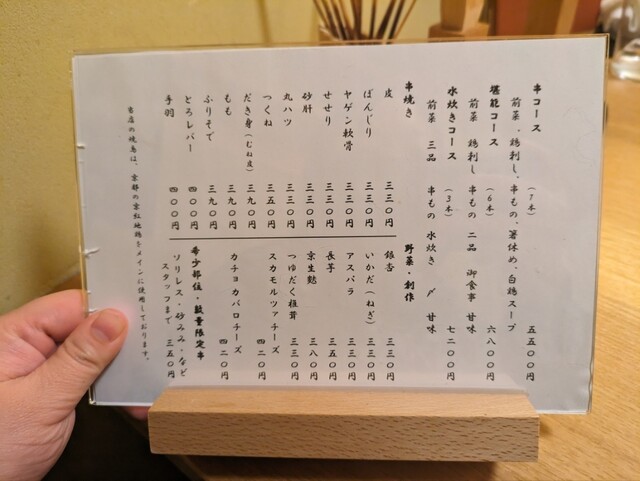 串コース
前菜、鶏刺し、串もの、箸休め、白鶏スープ
（7本） 五五〇〇円
堪能コース
前菜 鶏刺し 串もの 二品 御食事 甘味
（6本） 六八〇〇円
水炊きコース
前菜 三品 串もの 水炊き 〆 甘味
（3本） 七二〇〇円
串焼き
皮 三三〇円
ぼんじり 三三〇円
ヤゲン軟骨 三三〇円
せせり 三三〇円
砂肝 三三〇円
丸ハツ 三三〇円
つくね 三五〇円
だき身（むね皮） 三九〇円
もも 三九〇円
ふりそで 三九〇円
とろレバー 四〇〇円
手羽 四〇〇円
野菜・創作
銀杏 三三〇円
いかだ（ねぎ） 三三〇円
アスパラ 三三〇円
長芋 三五〇円
京生麩 三八〇円
つゆだく椎茸 三三〇円
スカモルツァチーズ 四二〇円
カチョカバロチーズ 四二〇円
希少部位・数量限定串
ソリレス・砂みみ・など
スタッフまで 三五〇円
当店の焼鳥は、京都の京紅地鶏をメインに使用しております。